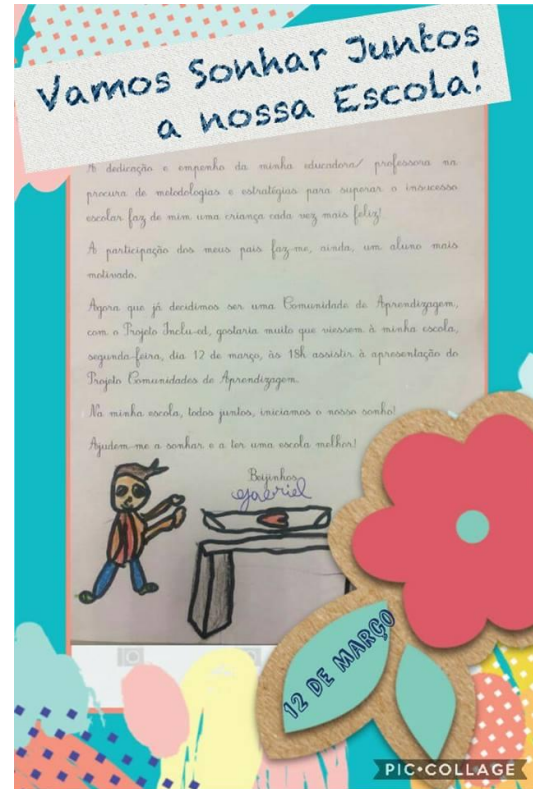 Vamos Sonhar Juntos
a nossa Escola!
A dedicação e empenho da minha educadora/ professora na
procura de metodologias e estratégias para superar o insucesso
escolar faz de mim uma criança cada vez mais feliz!
A participação dos meus pais faz-me, ainda, um aluno mais
motivado.
Agora que já decidimos ser uma Comunidade de Aprendizagem,
com o Projeto Inclu-ed, gostaria muito que viessem à minha escola,
segunda-feira, dia 12 de março, às 18h assistir à apresentação do
Projeto Comunidades de Aprendizagem.
Na minha escola, todos juntos, iniciamos o nosso sonho!
Ajudem-me a sonhar e a ter uma escola melhor!
Beijinhos
gabriel
12 DE MARÇO
PIC•COLLAGE